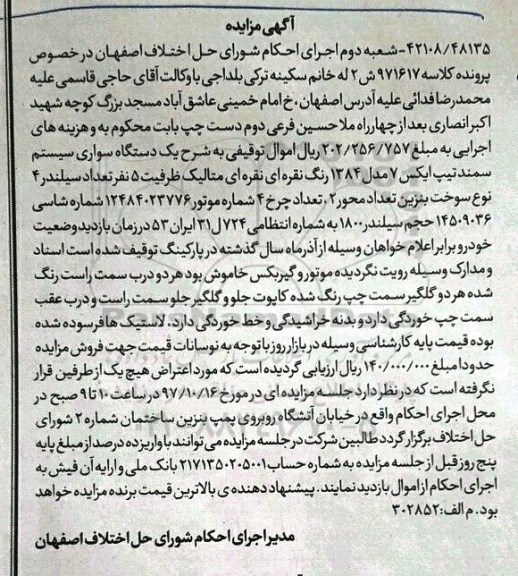 آگهی مزایده
۴۲۱۰۸/۴۸۱۳۵-شعبه دوم اجرای احکام شورای حل اختلاف اصفهان در خصوص
پرونده کلاسه ۹۷۱۶۱۷ ش ۲ له خانم سکینه ترکی بلداجی با وکالت آقای حاجی قاسمی علیه
محمدرضا فدائی علیه آدرس اصفهان، خ امام خمینی عاشق آباد مسجد بزرگ کوچه شهید
اکبر انصاری بعد از چهارراه ملا حسین فرعی دوم دست چپ بابت محکوم به و هزینه های
اجرایی به مبلغ ۲۰۲/۲۵۶/۷۵۷ ریال اموال توقیفی به شرح یک دستگاه سواری سیستم
سمند تیپ ایکس ۷ مدل ۱۳۸۴ رنگ نقره ای نقره ای متالیک ظرفیت ۵ نفر تعداد سیلندر ۴
نوع سوخت بنزین تعداد محور ۲، تعداد چرخ ۴ شماره موتور ۱۲۴۸۴۰۲۳۷۷۶ شماره شاسی
۱۴۵۰۹۰۳۶ حجم سیلندر ۱۸۰۰ به شماره انتظامی ۷۲۴ ل ۳۱ ایران ۵۳ در زمان بازدید وضعیت
خودرو برابر اعلام خواهان وسیله از آذر ماه سال گذشته در پارکینگ توقیف شده است اسناد
و مدارک وسیله رویت نگردیده موتور و گیربکس خاموش بود هر دو درب سمت راست رنگ
شده هر دو گلگیر سمت چپ رنگ شده کاپوت جلو و گلگیر جلو سمت راست و درب عقب
سمت چپ خوردگی دارد و بدنه خراشیدگی و خط خوردگی دارد. لاستیک ها فرسوده شده
بوده قیمت پایه کارشناسی وسیله در بازار روز با توجه به نوسانات قیمت جهت فروش مزایده
حدودا مبلغ ۱۴۰/۰۰۰/۰۰۰ ریال ارزیابی گردیده است که مورد اعتراض هیچ یک از طرفین قرار
نگرفته است که در نظر دارد جلسه مزایده ای در مورخ ۹۷/۱۰/۱۶ در ساعت ۱۰ تا ۹ صبح در
محل اجرای احکام واقع در خیابان آتشگاه روبروی پمپ بنزین ساختمان شماره ۲ شورای
حل اختلاف برگزار گردد طالبین شرکت در جلسه مزایده می توانند با واریز ده درصد از مبلغ پایه
پنج روز قبل از جلسه مزایده به شماره حساب ۲۱۷۱۳۵۰۲۰۵۰۰۱ بانک ملی و ارایه آن فیش به
اجرای احکام از اموال بازدید نمایند. پیشنهاد دهنده ی بالاترین قیمت برنده مزایده خواهد
بود. م الف: ۳۰۲۸۵۲
مدیر اجرای احکام شورای حل اختلاف اصفهان